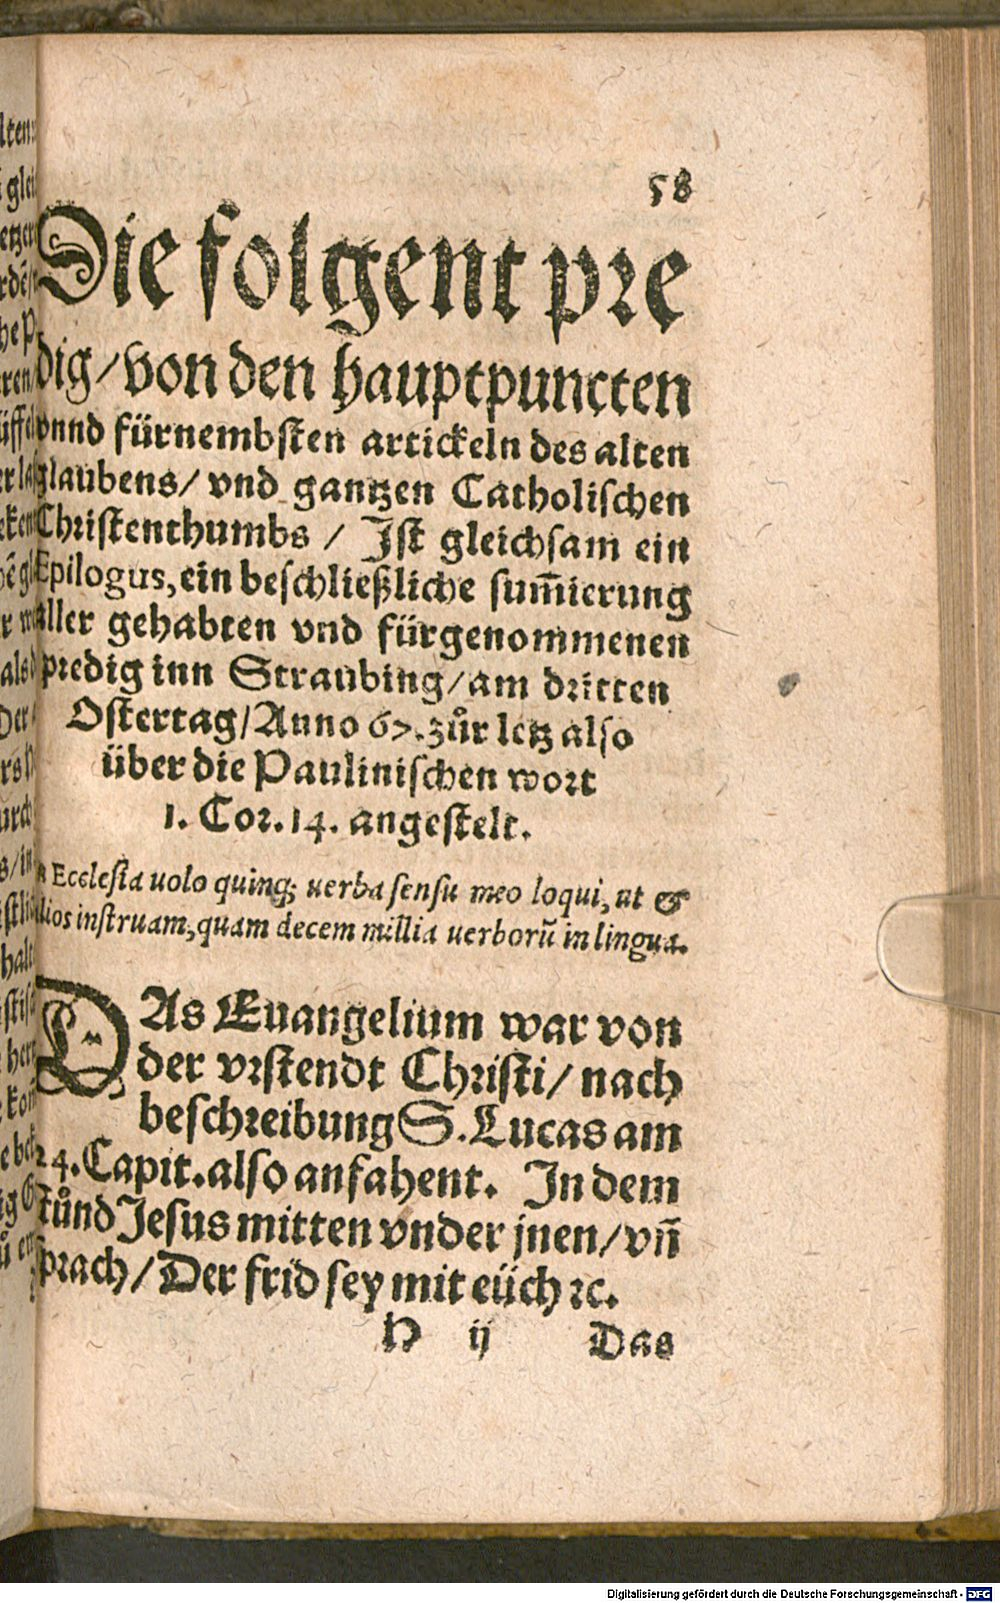 58
Die folgent pre
dig/von den hauptpuncten
vnnd fürnembsten artickeln des alten
glaubens/ vnd gantzen Catholischen
Christenthumbs / Ist gleichsam ein
Epilogus, ein beschließliche sum̃ierung
aller gehabten vnd fürgenommenen
predig inn Straubing/am dritten
Ostertag/Anno 67.zůr letz also
über die Paulinischen wort
1. Cor. 14. angestelt.
Ecclesia uolo quinq; uerba sensu meo loqui, ut &
alios instruam, quam decem millia uerborũ in lingua.
DAs Euangelium war von
der vrstendt Christi/ nach
beschreibung S.Lucas am
24.Capit.also anfahent. In dem
stůnd Jesus mitten vnder jnen/vñ
sprach/Der frid sey mit eüch ꝛc.
H ij Das
Digitalisierung gefördert durch die Deutsche Forschungsgemeinschaft - DFG